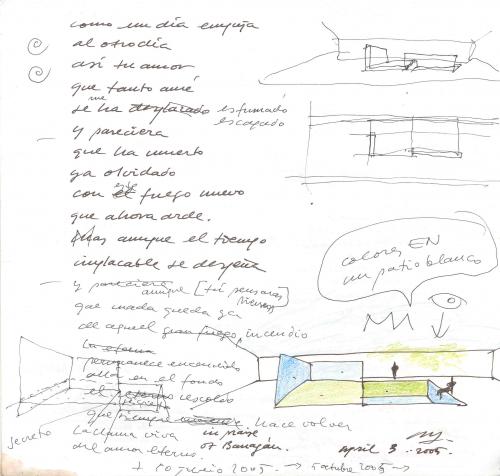 como un dia empuja
al otro dia
así tu amor
que tanto amé
me
se ha desplazado esfumado
escapado
y pareciera
que ha muerto
ya olvidado
con el ese fuego nuevo
que ahora arde.
Mas aunque el tiempo
implacable se despeña
y pareciera aunque [tú pensaras]
pienses
que nada queda ya
de aquel gran fuego incendio
la
permanece encendido
allá en el fondo
el rescoldo
que siempre hace volver
secreto
la llama viva
del amor eterno.
in praise
of Baragán.
colores EN
un patio blanco
april 3 2005.
+ 10 junio 2005 → 5 octubre 2005 →